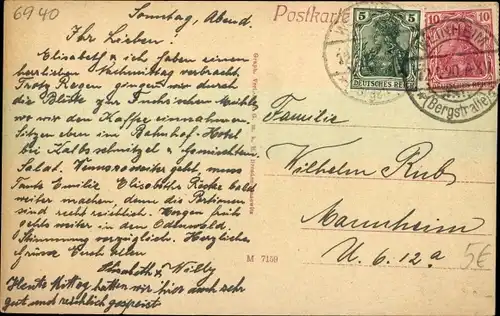 6940
Sonntag, Abend.
Ihr Lieben!
Elisabeth & ich haben einen
herzlichen Nachmittag verbracht.
Trotz Regen gingen wir durch
die Blüte zur Fuchs'schen Mühle,
wo wir den Kaffee einnahmen.
Sitzen eben im Bahnhof-Hotel
bei Kalbsschnitzel & gemischtem
Salat. Wenn so weiter geht, muss
Tante Emilie Elisabeths Röcke bald
weiter machen, denn die Portionen
sind recht reichlich. Morgen früh
gehts weiter in den Odenwald.
Stimmung vorzüglich. Herzliche
Grüsse Euch allen
Elisabeth & Willy
Heute Mittag hatten wir hier auch sehr
gut und reichlich gespeist
Postkarte
5
DEUTSCHES REICH
10
DEUTSCHES REICH
WEINHEIM
(Bergstraße)
M 7159
Familie
Wilhelm Rub
Mannheim
U. 6. 12a
5€